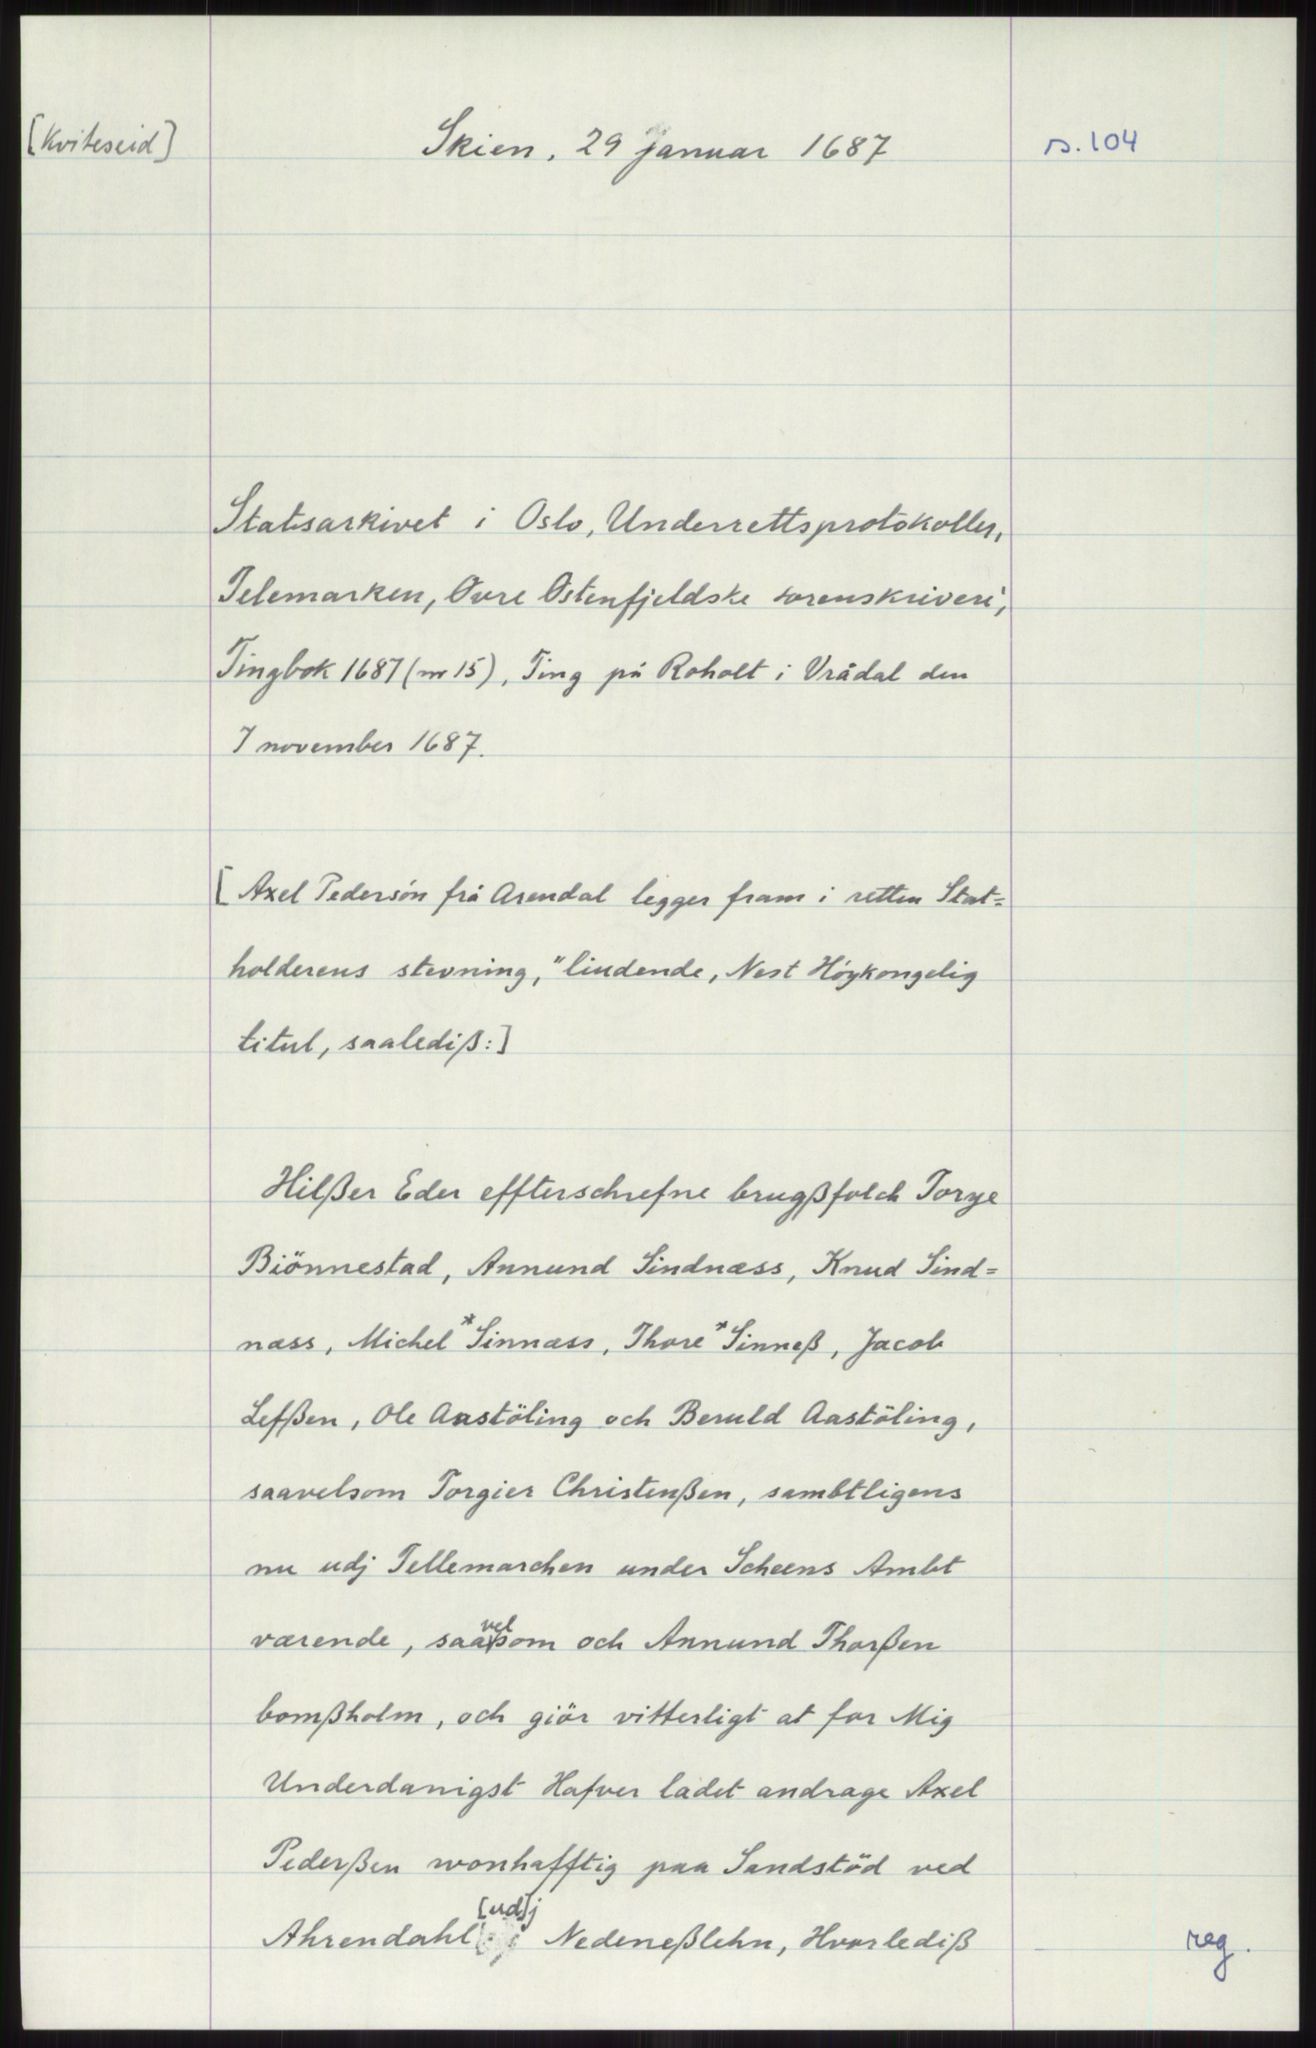 [Kviteseid]
Skien, 29 januar 1687
s. 104
Statsarkivet i Oslo, Underrettsprotokoller,
Telemarken, Øvre Østenfjeldske sorenskriveri,
Tingbok 1687 (nr 15), Ting på Roholt i Vrådal den
7 november 1687.
[Axel Pedersøn frå Arendal legger fram i retten Stat=
holderens stevning, "liudende, Nest Høykongelig
titul, saalediß:]
Hilßer Eder effterschrefne brugßfolch Torge
Biönnestad, Annund Sindnæss, Knud Sind=
næss, Michel *Sinnæss, Thore *Sinneß, Jacob
Lefßen, Ole Aastöling och Beruld Aastöling,
saavelsom Torgier Christenßen, sambtligens
nu udj Tellemarchen under Scheens Ambt
værende, saavelsom och Annund Thorßen
bomßholm, och giör vitterligt at for Mig
Underdanigst Hafver ladet andrage Axel
Pederßen wonhafftig paa Sandstöd ved
Ahrendahl [ud]j Nedeneßlehn, Hvorlediß
reg.